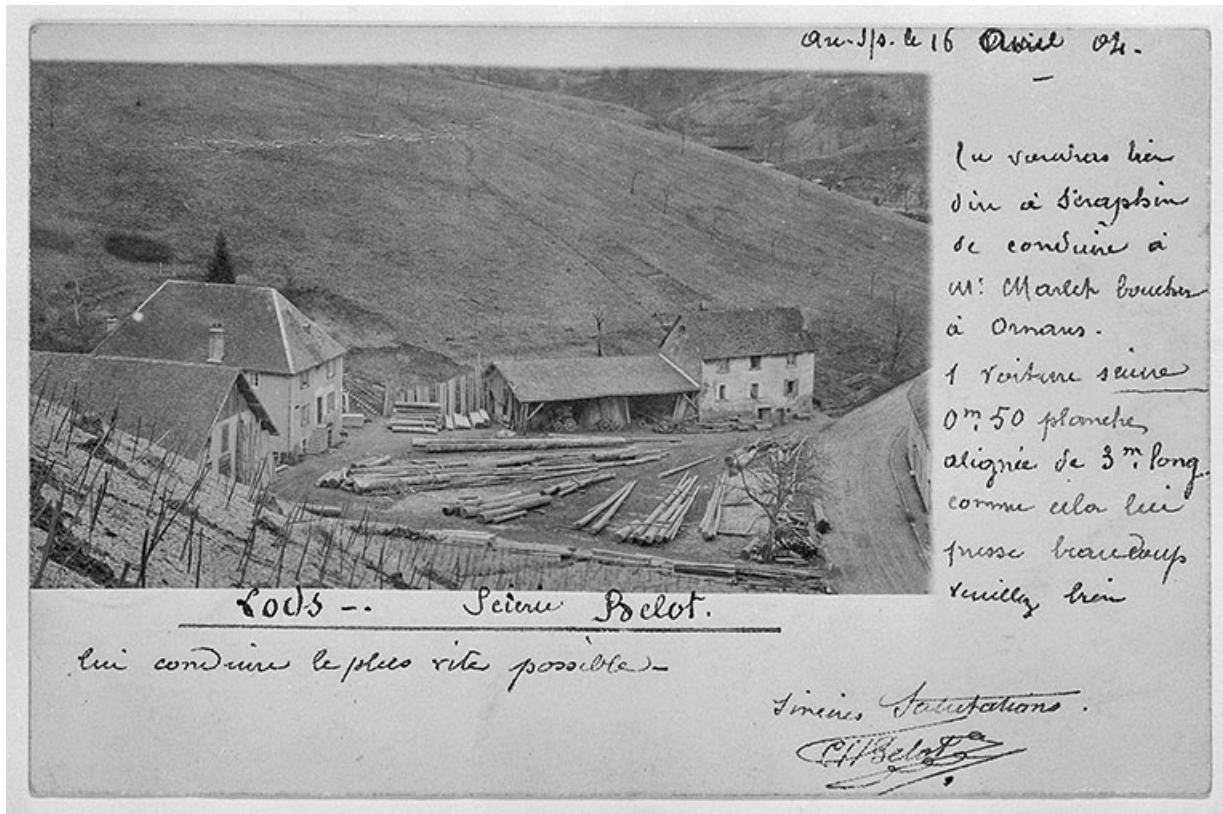 le 16 Avril 04.
Tu voudras bien
dire à Séraphin
de conduire à
Mr. Marlet boucher
à Ornans.
1 voiture sciure
0m,50 planches
alignée de 3m, long
comme cela lui
presse beaucoup
Veuillez bien
Lods -. Scierie Belot.
lui conduire le plus vite possible -
Sincères Salutations.
Belot